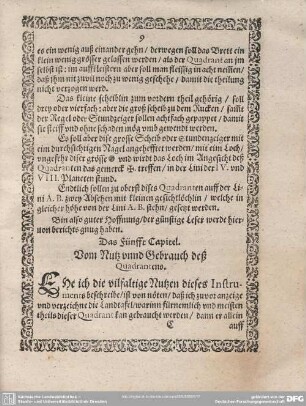 9
es ein wenig auß einander gehn / derwegen soll das Brett ein
klein wenig grösser gelassen werden / als der Quadrant an jm
selbst ist: im auffleisteren aber soll man fleissig in acht nemmen /
daß ihm nit zuvil noch zu wenig geschehe / damit die theilung
nicht verzogen werd.
Das kleine scheiblin zum vordern theil gehörig / soll
drey oder vierfach: aber die groß scheib zu dem Rucken / sampt
der Regel oder Stundzeiger sollen achtfach gepappet / damit
sie steiff vnd ohne schaden mög vmb gewendt werden.
Es soll aber dise grosse Scheib oder Stundenzeiger mit
ein durchsichtigen Nagel angehefftet werden / mit eim Loch /
vngefehr diser grösse vnd wirdt das Loch im Angesicht deß
Quadranten das gemerck treffen / in der Lini der IV. vnd
VIII. Planeten stund.
Endtlich sollen zu oberst dises Quadranten auff der Li-
ni A B. zwey Absehen mit kleinen gesichtlöchlin / welche in
gleicher höhe von der Lini A. B. stehn / gesetzt werden.
Bin also guter Hoffnung / der günstige Leser werde hier-
von berichts gnug haben.
Das Fünfft Capitel.
Vom Nutz vnnd Gebrauch deß
Quadranten.
EHe ich die vilfaltige Nutzen dieses Instru-
ments beschreibe / ist von nöten / daß ich zuvor anzeige
vnd verzeichne die Landtafel / warinn fürnemlich vnd meisten
theils dieser Quadrant kan gebraucht werden / dann er allein
C
auff